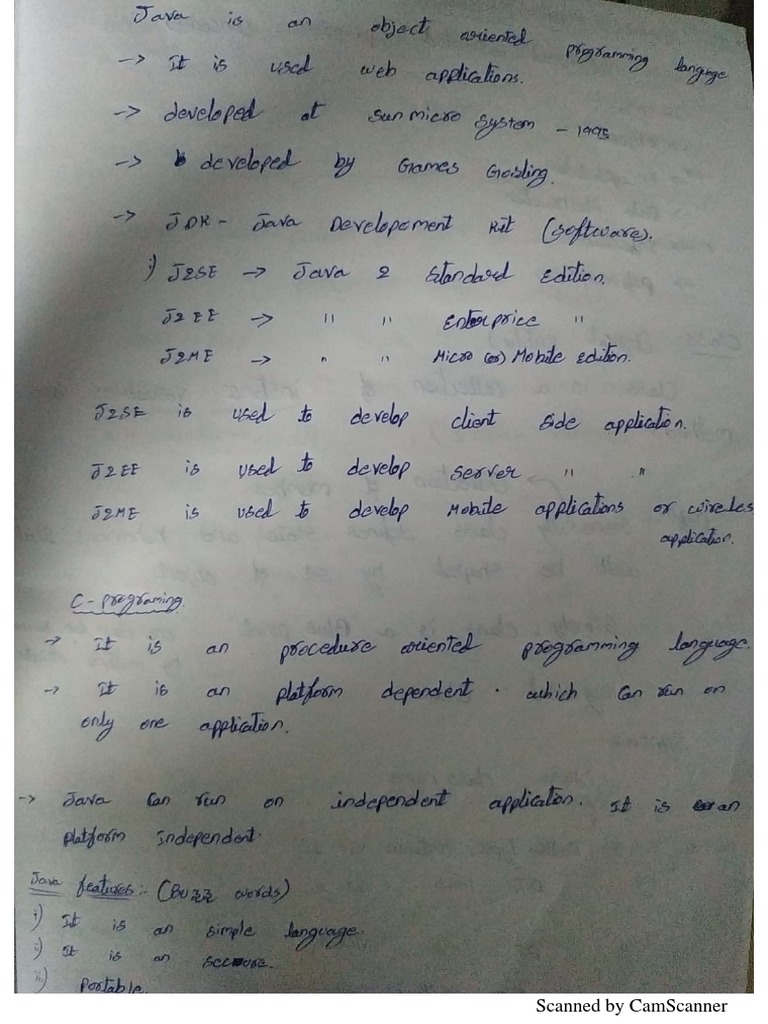 Java is an object oriented programming language
-> It is used web applications.
-> developed at sun micro system - 1995
-> developed by Games Gosling.
-> JDK - Java Developement Kit (software).
i) J2SE -> Java 2 Standard Edition.
J2EE -> " " Enterprice "
J2ME -> " " Micro (or) Mobile edition.
J2SE is used to develop client side application.
J2EE is used to develop server " "
J2ME is used to develop Mobile applications or wireles
application.
C-programing.
-> It is an procedure oriented programming language.
-> It is an platform dependent. which can run on
only one application.
-> Java can run on independent application. It is an
platform Independent.
Java features:- (Buzz words)
i) It is an simple language.
ii) It is an secure.
iii) Portable.
Scanned by CamScanner